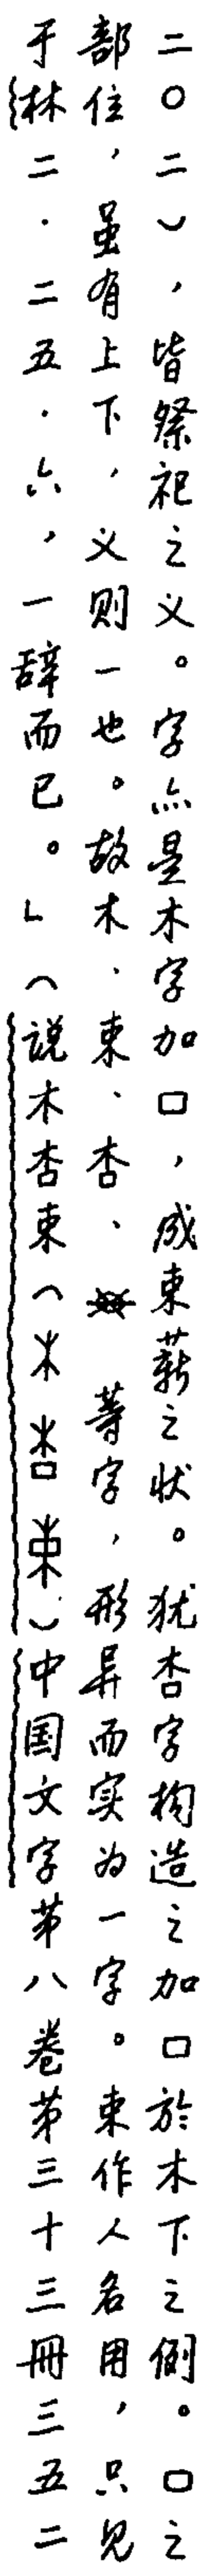 二〇二），皆祭祀之义。字亦是木字加口，成束薪之状。犹杏字构造之加口於木下之例。口之
部位，虽有上下，义则一也。故木、束、杏、等字，形异而实为一字。束作人名用，只见
于林二·二五·六，一辞而已。」（说木杏束（木杏束）中国文字第八卷第三十三册三五二